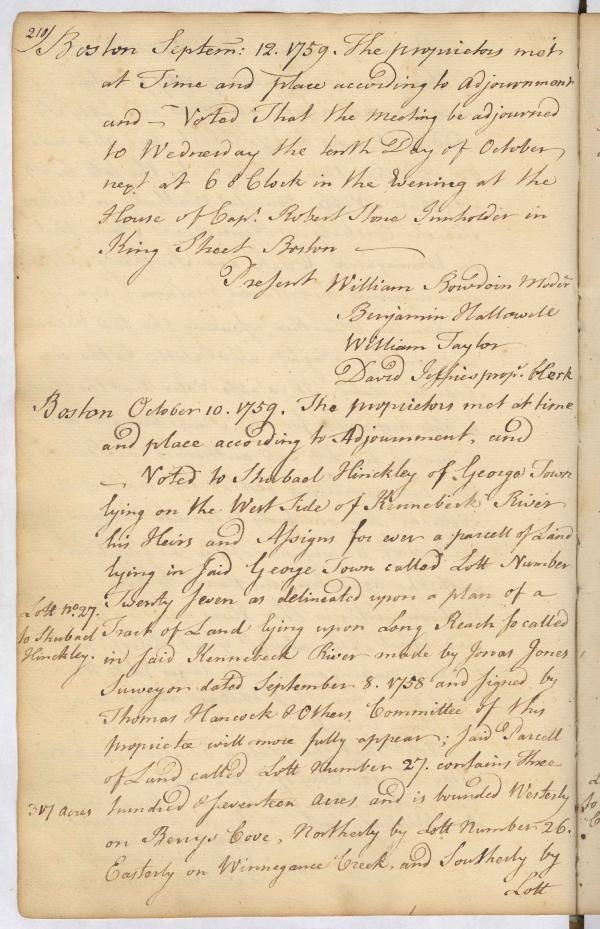 210/
Boston Septem: 12. 1759. The proprietors met
at Time and place according to Adjournment
and — Voted That the meeting be adjourned
to Wednesday the tenth Day of October
next at 6 o Clock in the Evening at the
House of Capt. Robert Stone Innholder in
King Street Boston —
Present William Bowdoin Moderr
Benjamin Hallowell
William Taylor
David Jeffries propr. Clerk
Boston October 10. 1759. The proprietors met at time
and place according to Adjournment, and
— Voted to Shubael Hinckley of George Town
lying on the West Side of Kennebeck River
his Heirs and Assigns for ever a parcell of Land
lying in said George Town called Lott Number
Twenty Seven as delineated upon a plan of a
Lott no. 27.
to Shubael
Hinckley.
Tract of Land lying upon Long Reach so called
in said Kennebeck River made by Jonas Jones
Surveyor dated September 8. 1758 and signed by
Thomas Hancock & Others Committee of this
proprietee will more fully appear; said Parcell
of Land called Lott Number 27. contains Three
317 Acres
hundred & seventeen Acres and is bounded Westerly
on Berrys Cove, Northerly by Lott Number 26.
Easterly on Winnegance Creek, and Southerly by
Lott